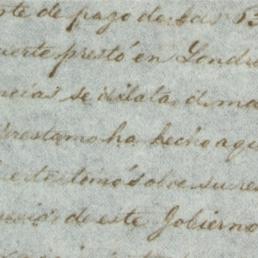 rte de pago de las 63
uerte prestó en Londre
ncias se dilata, d. ma
Préstamo ha hecho aqu
te tomó sobre su res
de este Gobierno